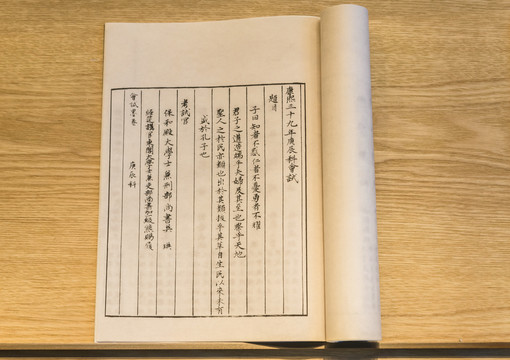 康熙三十九年庚辰科會試
題目
子曰知者不惑仁者不憂勇者不懼
君子之道造端乎夫婦及其至也察乎天地
聖人之於民亦類也出於其類拔乎其萃自生民以來未有
盛於孔子也
考試官
保和殿大學士兼刑部尚書吳琠
經筵講官東閣大學士兼吏部尚書加級熊賜履
會試墨卷 庚辰科